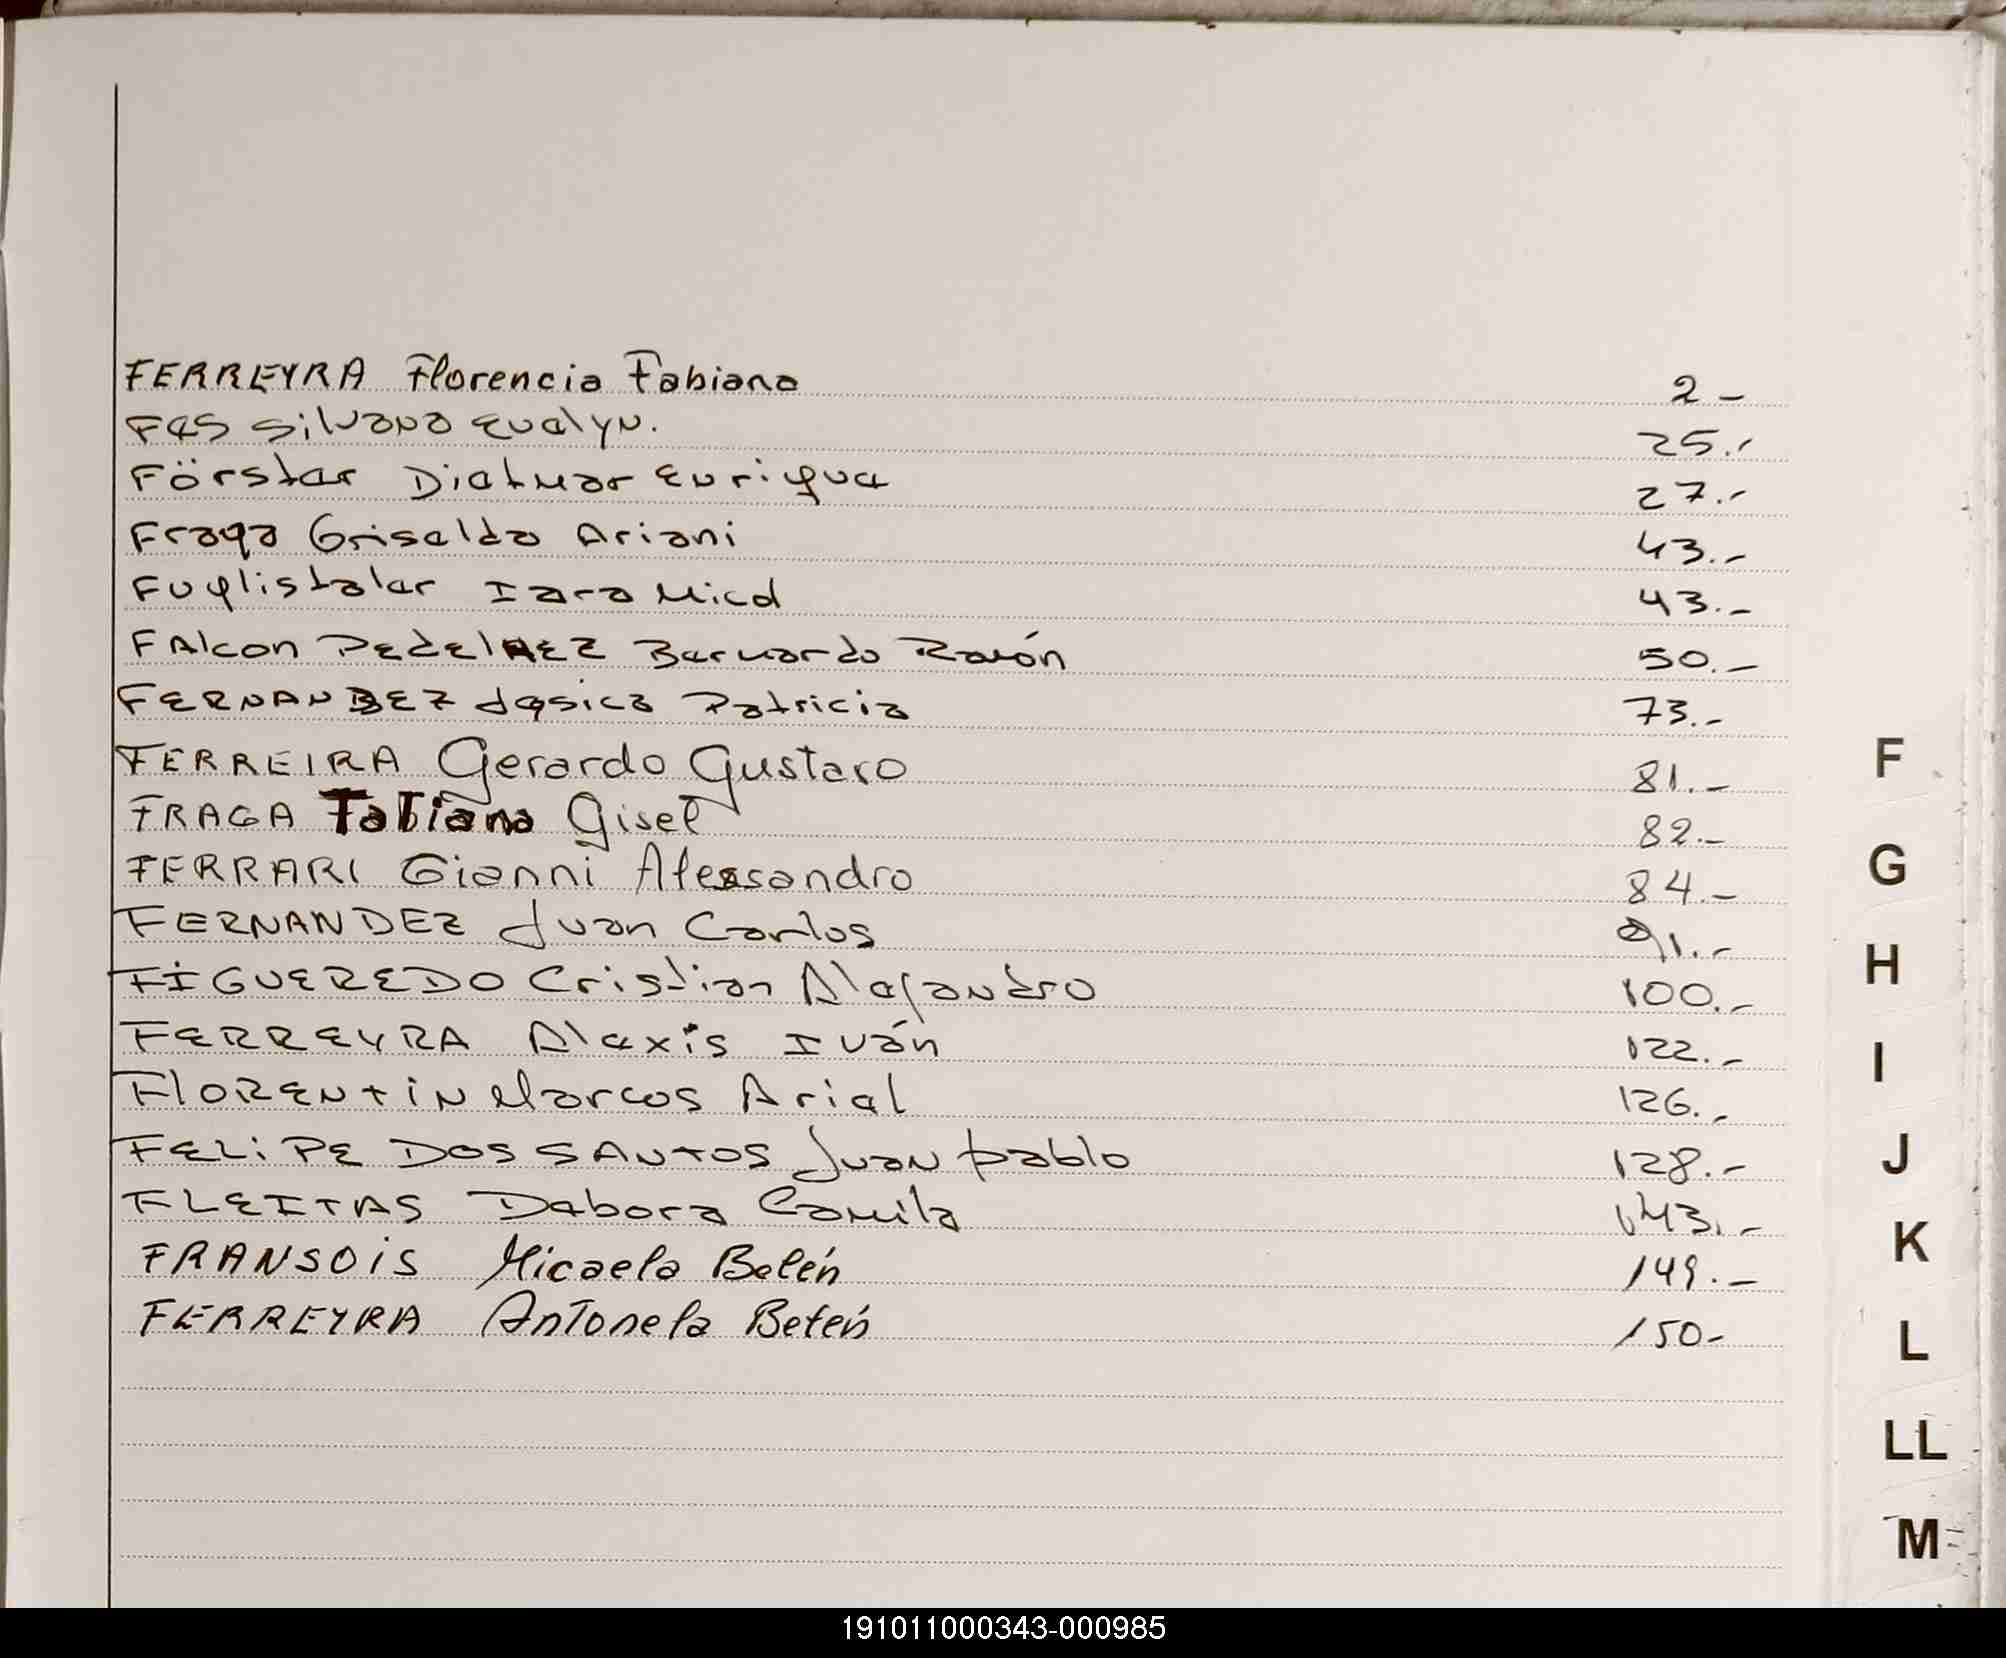 FERREYRA Florencia Fabiana 2.-
Fes Silvana Evelyn. 25.-
Förster Dietmar Enrique 27.-
Fraga Griselda Ariani 43.-
Fuglistaler Iara Micd 43.-
FAlcon Bernardo Ramón 50.-
FERNANDEZ Jesica Patricia 73.-
FERREIRA Gerardo Gustavo 81.-
FRAGA Tatiana Gisel 82.-
FERRARI Gianni Alessandro 84.-
FERNANDEZ Juan Carlos 91.-
FIGUEREDO Cristian Alejandro 100.-
FERREYRA Alexis Iván 122.-
FlORENtiN Marcos Ariel 126.-
FELIPE DOS SANTOS Juan pablo 128.-
FLEITAS Debora Camila 143.-
FRANSOIS Micaela Belén 149.-
FERREYRA Antonela Belén 150-
F
G
H
I
J
K
L
LL
M
191011000343-000985